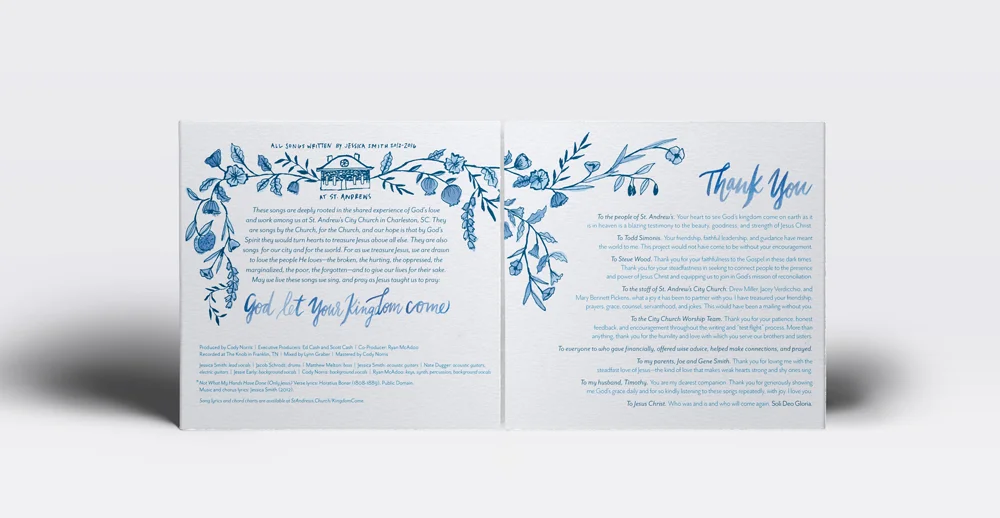 ALL SONGS WRITTEN BY JESSICA SMITH 2012-2016
AT ST. ANDREWS
These songs are deeply rooted in the shared experience of God's love
and work among us at St. Andrew's City Church in Charleston, SC. They
are songs by the Church, for the Church, and our hope is that by God's
Spirit they would turn hearts to treasure Jesus above all else. They are also
songs for our city and for the world. For as we treasure Jesus, we are drawn
to love the people He loves—the broken, the hurting, the oppressed, the
marginalized, the poor, the forgotten—and to give our lives for their sake.
May we live these songs we sing, and pray as Jesus taught us to pray:
God let Your Kingdom come
Produced by Cody Norris | Executive Producers: Ed Cash and Scott Cash | Co-Producer: Ryan McAdoo
Recorded at The Knoll in Franklin, TN | Mixed by | Mastered by Cody Norris
Jessica Smith: lead vocals | Jacob Schrodt: drums | Matthew Melton: bass | Jessica Smith: acoustic guitars | Nina Dugger: acoustic guitars,
electric guitars | Jesse Early: background vocals | Cody Norris: background vocals | Ryan McAdoo: keys, synth, percussion, background vocals
*Not What My Hands Have Done (Only Jesus) Verse lyrics: Horatius Bonar (1808-1889), Public Domain.
Music and chorus lyrics: Jessica Smith (2012).
Song lyrics and chord charts are available at StAndrews.Church/KingdomCome.
Thank You
To the people of St. Andrew's. Your heart to see God's kingdom come on earth as it
is in heaven is a blazing testimony to the beauty, goodness, and strength of Jesus Christ.
To Todd Simonis. Your friendship, faithful leadership, and guidance have meant
the world to me. This project would not have come to be without your encouragement.
To Steve Wood. Thank you for your faithfulness to the Gospel in these dark times.
Thank you for your steadfastness in seeking to connect people to the presence
and power of Jesus Christ and equipping us to join in God's mission of reconciliation.
To the staff of St. Andrew's City Church. Drew Miller, Jacey Verdicchio, and
Mary Bennett Pickens, what a joy it has been to partner with you. I have treasured your friendship,
prayers, grace, counsel, servanthood, and jokes. This would have been a mailing without you.
To the City Church Worship Team. Thank you for your patience, honest
feedback, and encouragement throughout the writing and "test flight" process. More than
anything, thank you for the humility and love with which you serve our brothers and sisters.
To everyone who gave financially, offered wise advice, helped make connections, and prayed.
To my parents, Joe and Gene Smith. Thank you for loving me with the
steadfast love of Jesus—the kind of love that makes weak hearts strong and shy ones sing.
To my husband, Timothy. You are my dearest companion. Thank you for generously showing
me God's grace daily and for so kindly listening to these songs repeatedly, with joy. I love you.
To Jesus Christ. Who was and is and who will come again. Soli Deo Gloria.